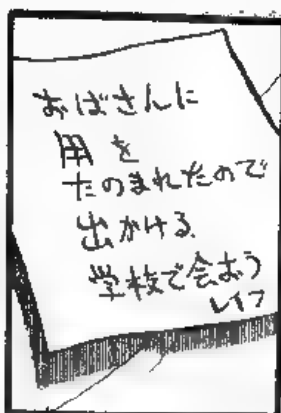 おばさんに
用を
たのまれたので
出かける、
学校で会おう
レイフ